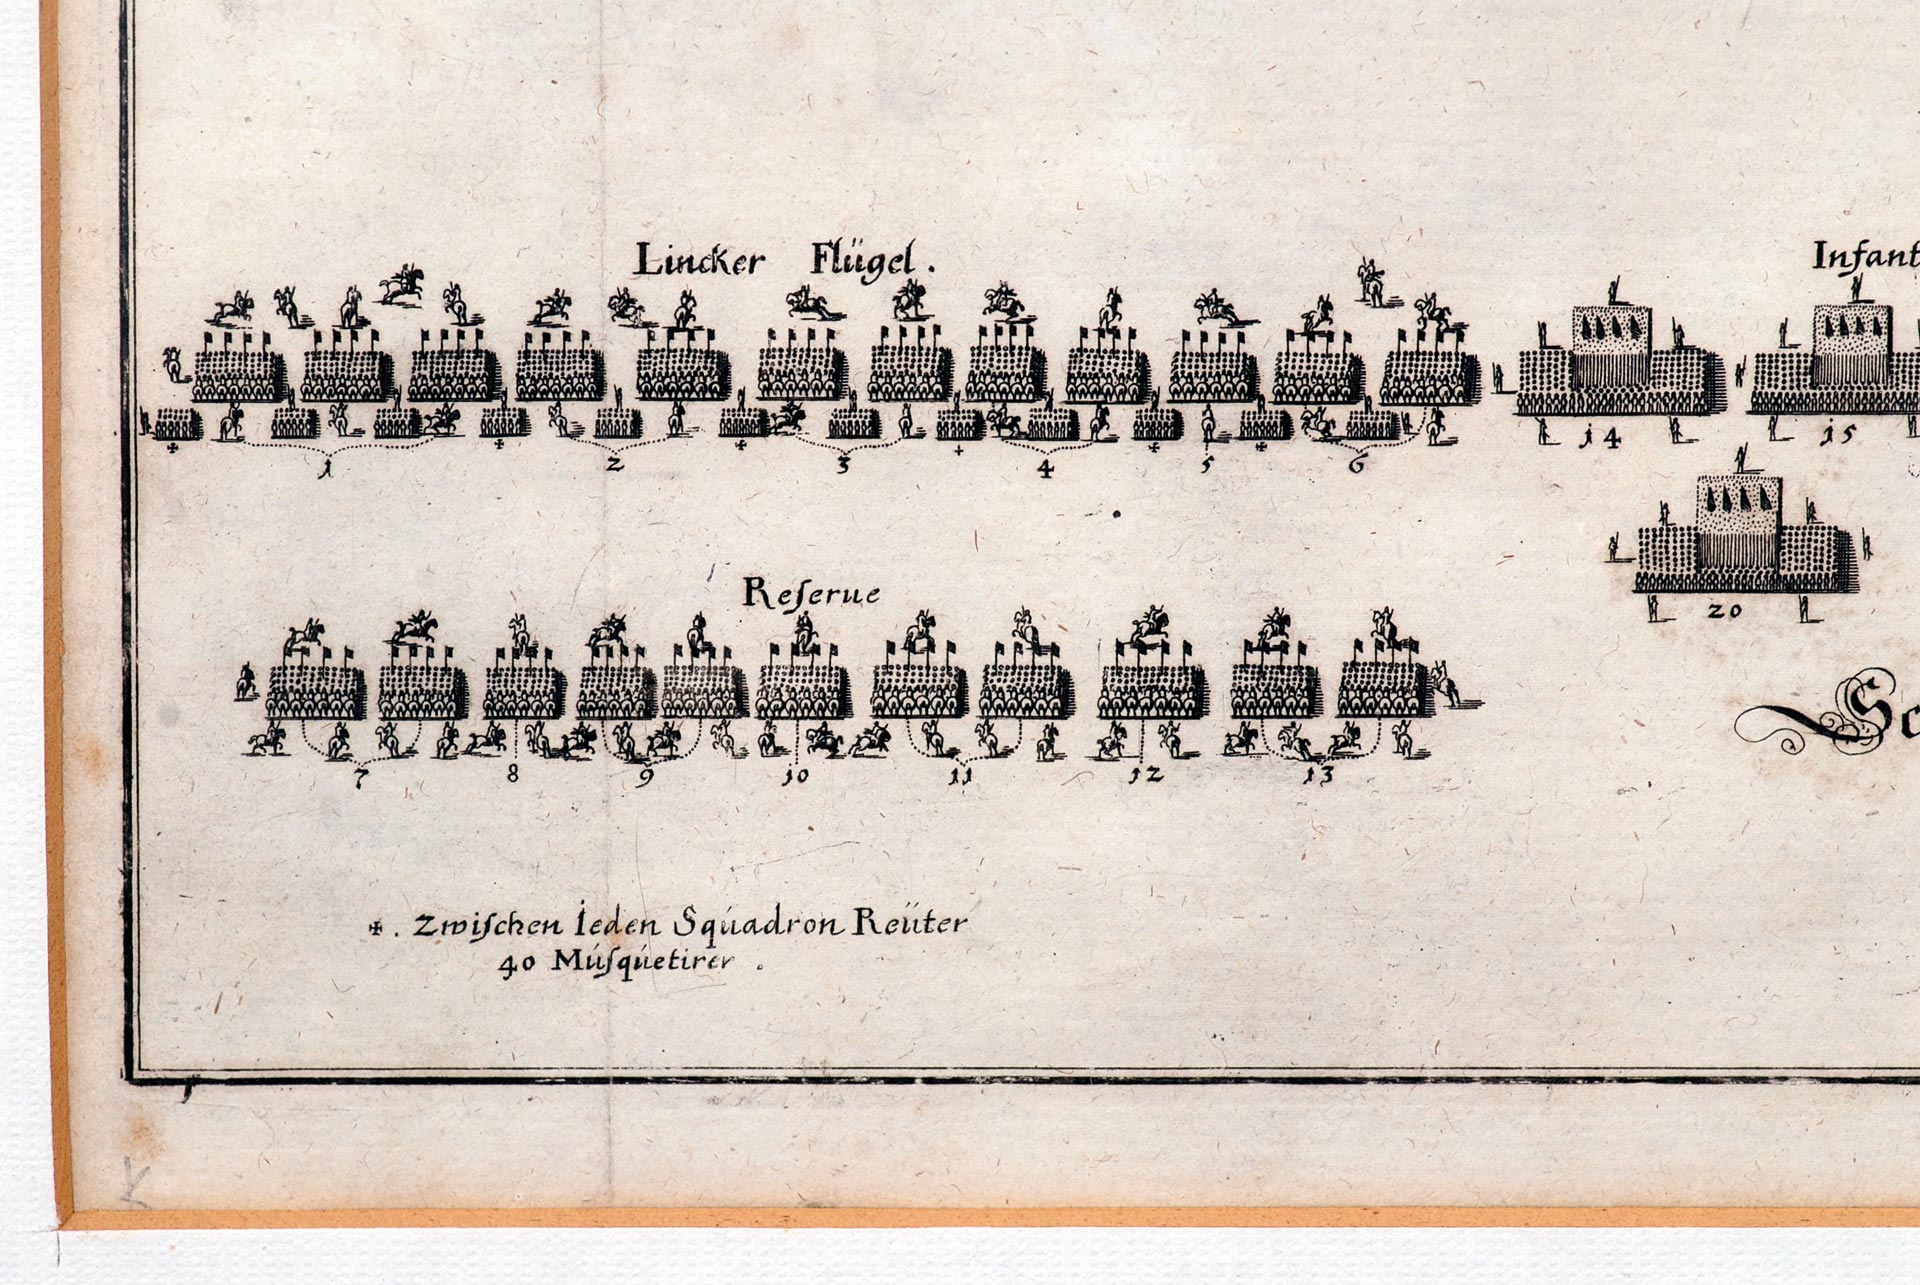 Lincker Flügel.
Infant
1 2 3 4 5 6 14 15
20
Reſerue
7 8 9 10 11 12 13
Sc
✠. Zwiſchen Ieden Squadron Reüter
40 Muſquetirer.